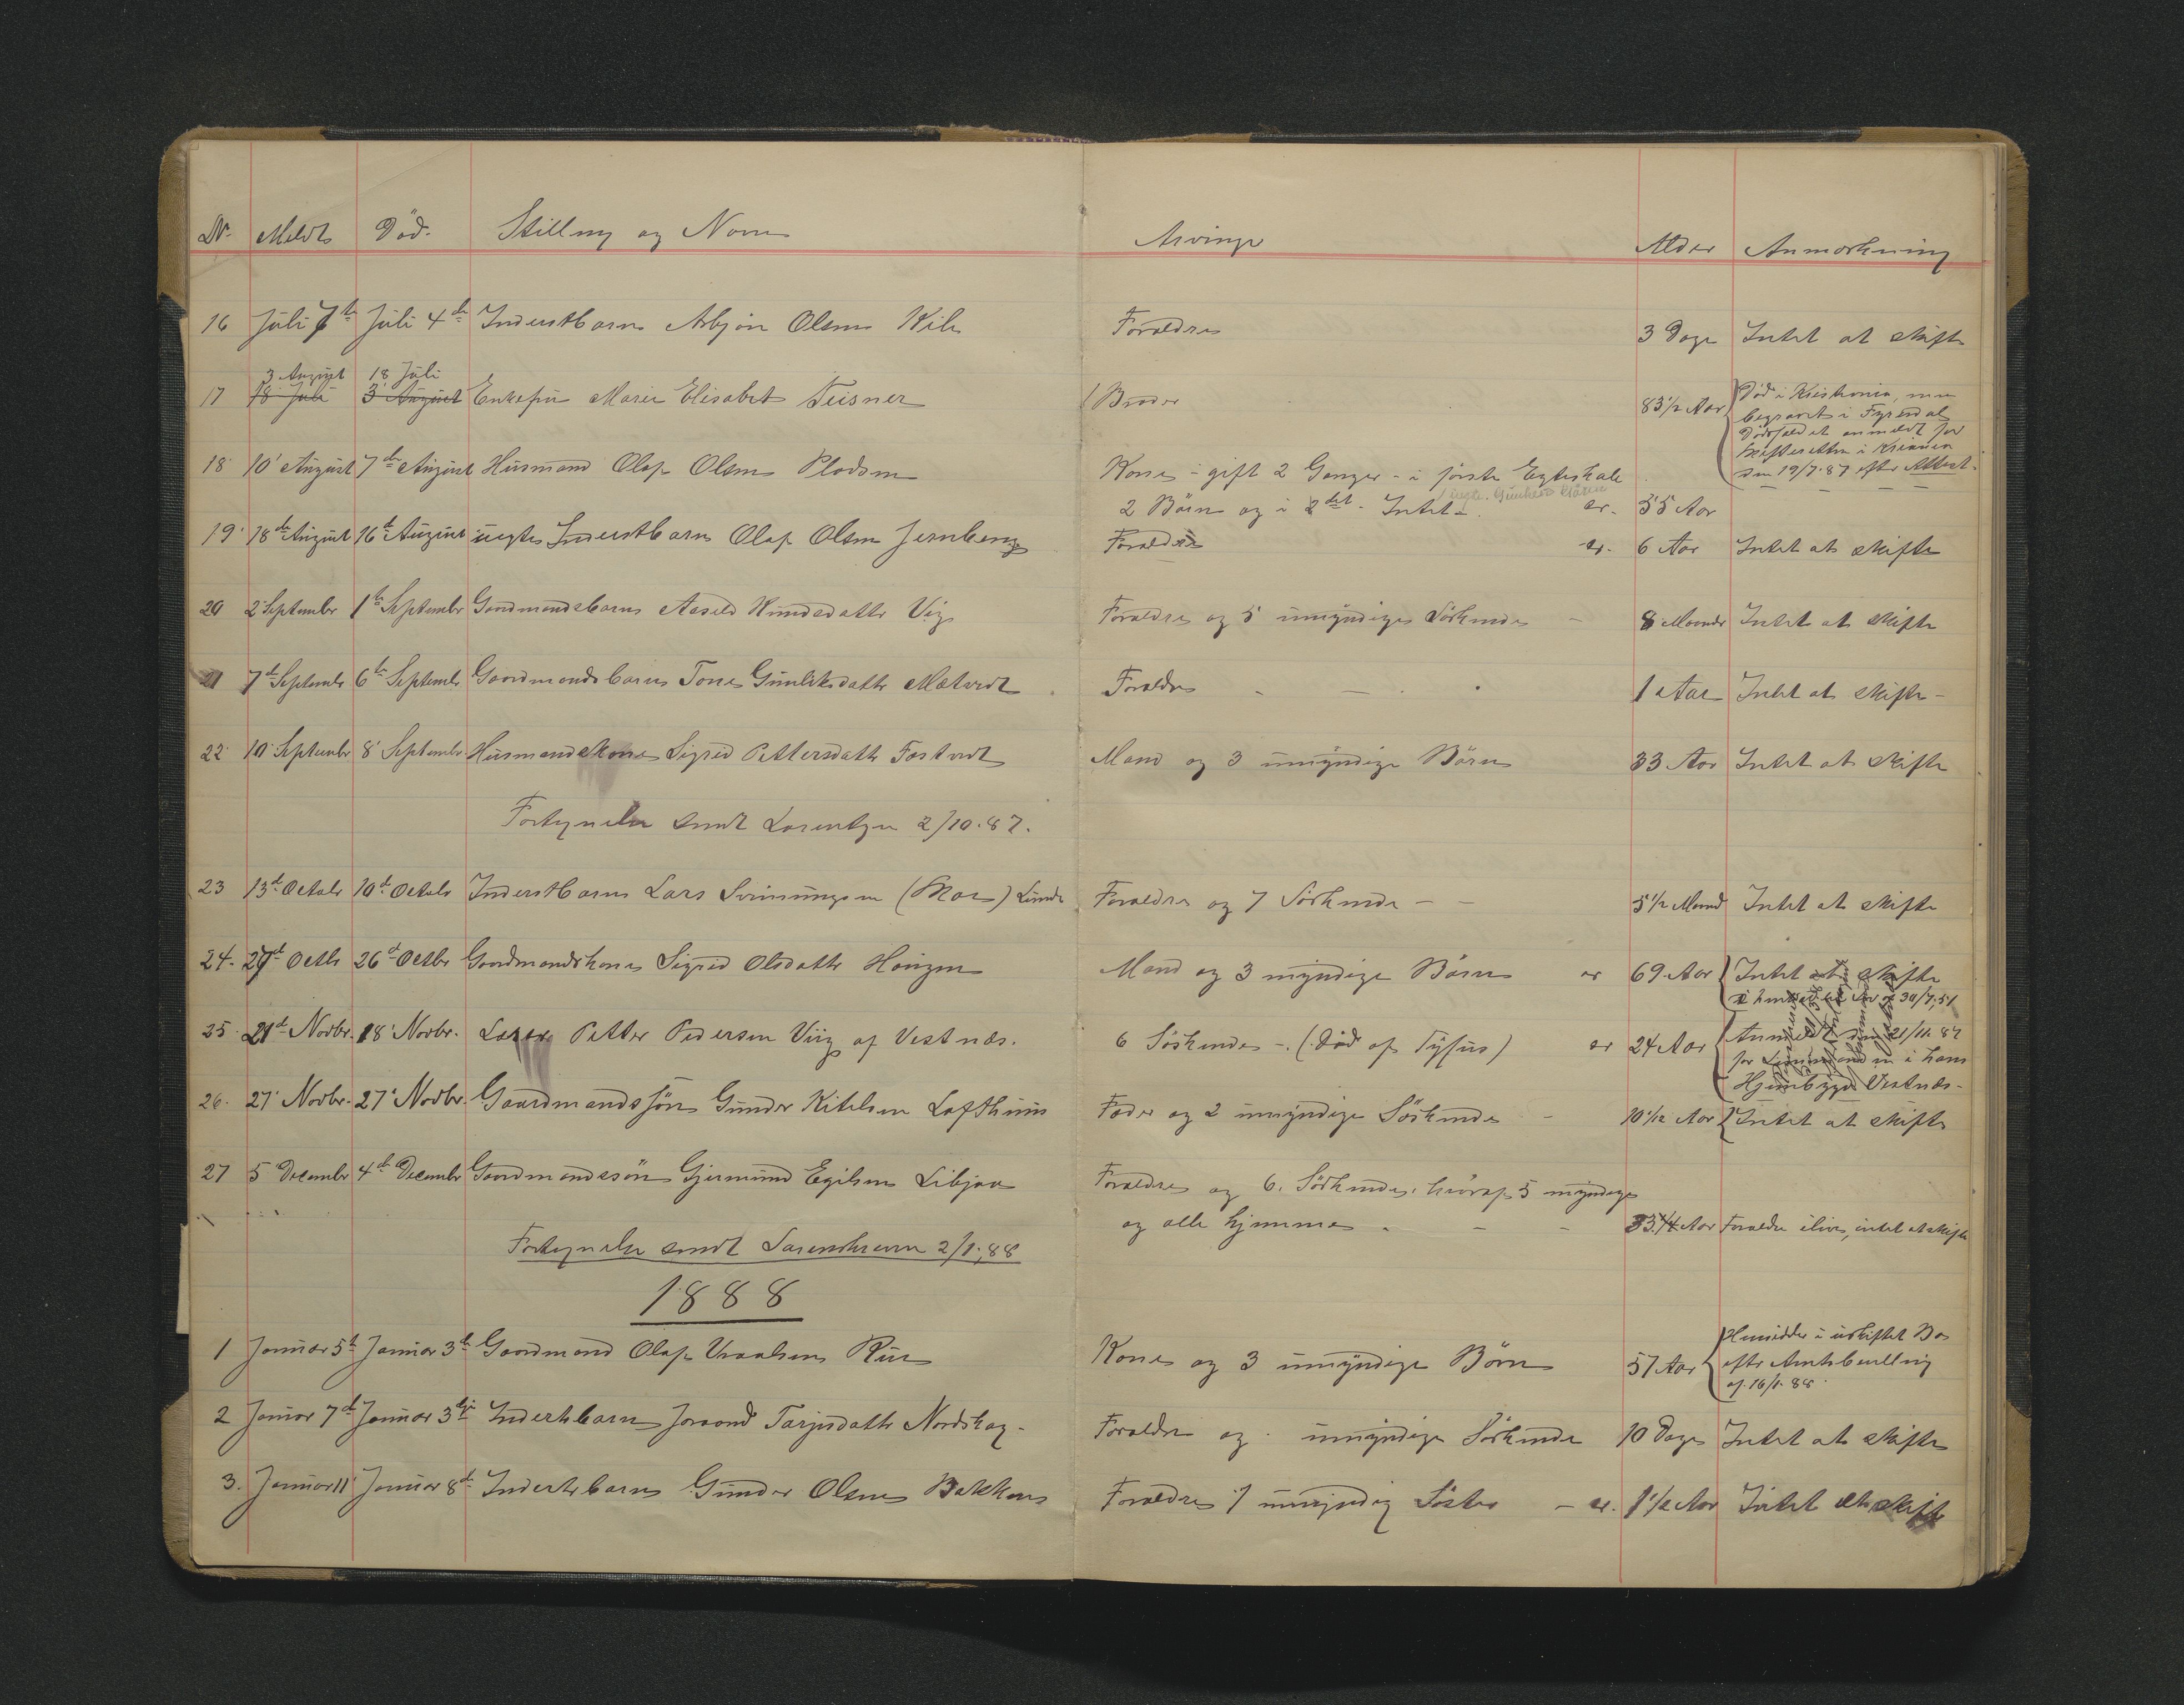 Nr. Meldt Död. Stilling og Navn Arvinge Alder Anmærkning
16 Juli 7de Juli 4de Inderstbarn Asbjön Olsen Kile Forældre 3 Dage Intet at skifte
3 August 18 Juli
17 18 Juli 3 August Enkefru Marie Elisabet Teisner 1 Broder 83 1/2 Aar Död i Kristiania, men
begravet i Fyresdal
Dödsfaldet anmeldt for
Skifteretten i Kristiania
den 19/7.87 efter Attest.
18 10 August 7de August Husmand Olaf Olsen Plodsen Kone - gift 2 Gange - i förste Egteskab
2 Börn og i 2det Intet - er. 55 Aar
19 18de August 16de August uegte Inderstbarn Olaf Olsen Jernberg Forældre er. 6 Aar Intet at skifte
20 2 September 1te September Gaardmandsbarn Aaseld Knudsdatter Vig Forældre og 5 umyndige Söskende - 8 Maaneder Intet at skifte
21 7de September 6te September Gaardmandsbarn Tone Gunleiksdatter Molvedt Forældre - - 1 Aar Intet at skifte -
22 10 September 8 September Husmandskone Sigrid Pettersdatter Fostvedt Mand og 3 umyndige Börn 33 Aar Intet at skifte
Fortegnelse sendt Lorentzen 2/10.87.
23 13de Octobr 10de Octobr Inderstbarn Lars Sveinungsen (Moe) Lunde Forældre og 7 Söskende - - 5 1/2 Maaned Intet at skifte
24. 29de Octbr 26de Octbr Gaardmandskone Sigrid Olsdatter Haugen Mand og 3 myndige Börn er 69 Aar Intet at skifte
30/7.51
25. 21de Novbr. 18 Novbr. Læger Petter Pedersen Viig af Vestnes. 6 Söskende -. (Död af Tyfus) er 24 Aar Anmeldt den 21/11.87
for Lensmanden i hans
Hjembygd Vestnæs -
26. 27 Novbr. 27 Novbr. Gaardmandssön Gunder Kitelsen Lofthuus Fader og 2 umyndige Söskende - 10 1/12 Aar Intet at skifte
27 5 Decembr 4de Decembr Gaardmandssön Gjermund Egilsen Libjaa Forældre og 6. Söskende, hvoraf 5 myndige
og alle hjemme - - - 33 1/4 Aar Forældre ilive, intet at skifte
Fortegnelse sendt Sorenskriveren 2/1.88
1888
1 Januar 5te Januar 3de Gaardmand Olaf Vraalsen Rui Kone og 3 umyndige Börn 57 Aar Hensidder i uskiftet Bo
efter Amtsbevilling
af 16/1.88.
2 Januar 7de Januar 3die Inderstbarn Joraand Tarjesdatter Nordskog - Forældre og umyndige Söskende 10 Dage Intet at skifte
3. Januar 11 Januar 8de Inderstbarn Gunder Olsen Bakken Forældre 1 umyndig Söster - er. 1 1/2 Aar Intet at skifte